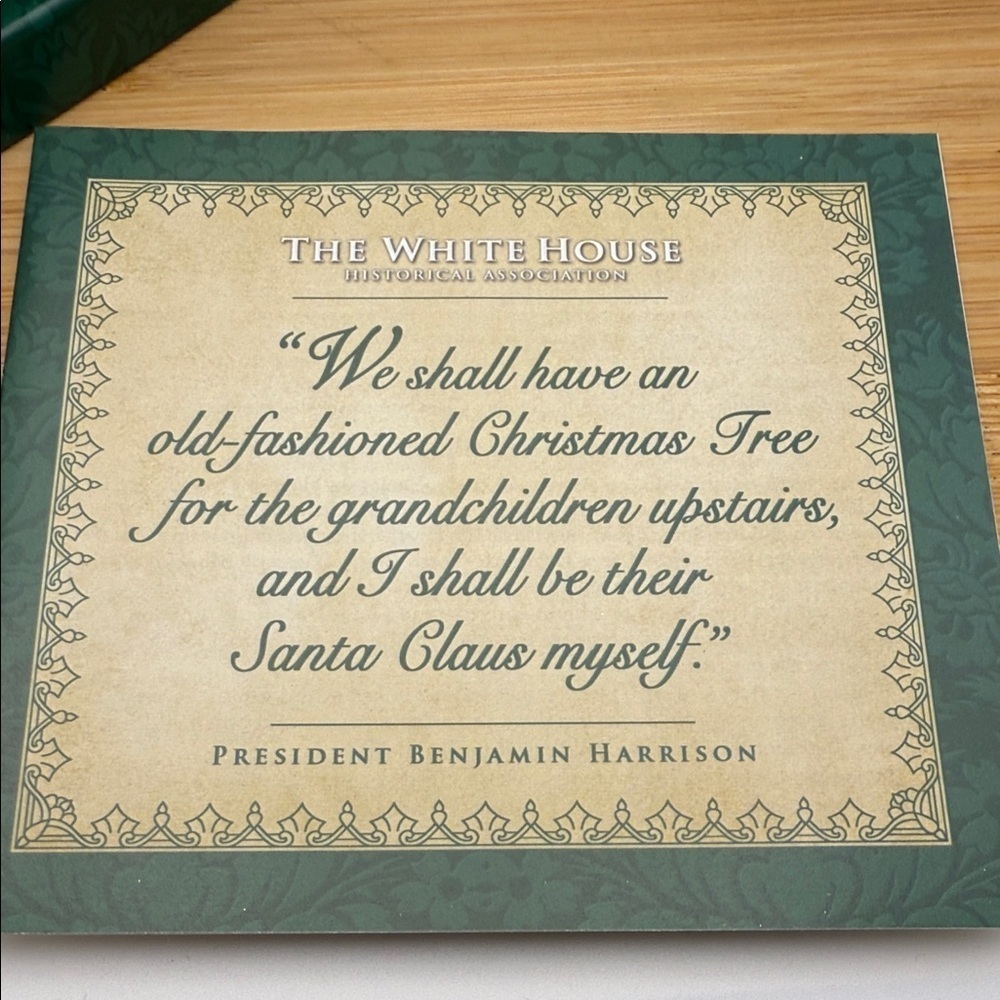 THE WHITE HOUSE
HISTORICAL ASSOCIATION
“We shall have an
old-fashioned Christmas Tree
for the grandchildren upstairs,
and I shall be their
Santa Claus myself.”
PRESIDENT BENJAMIN HARRISON